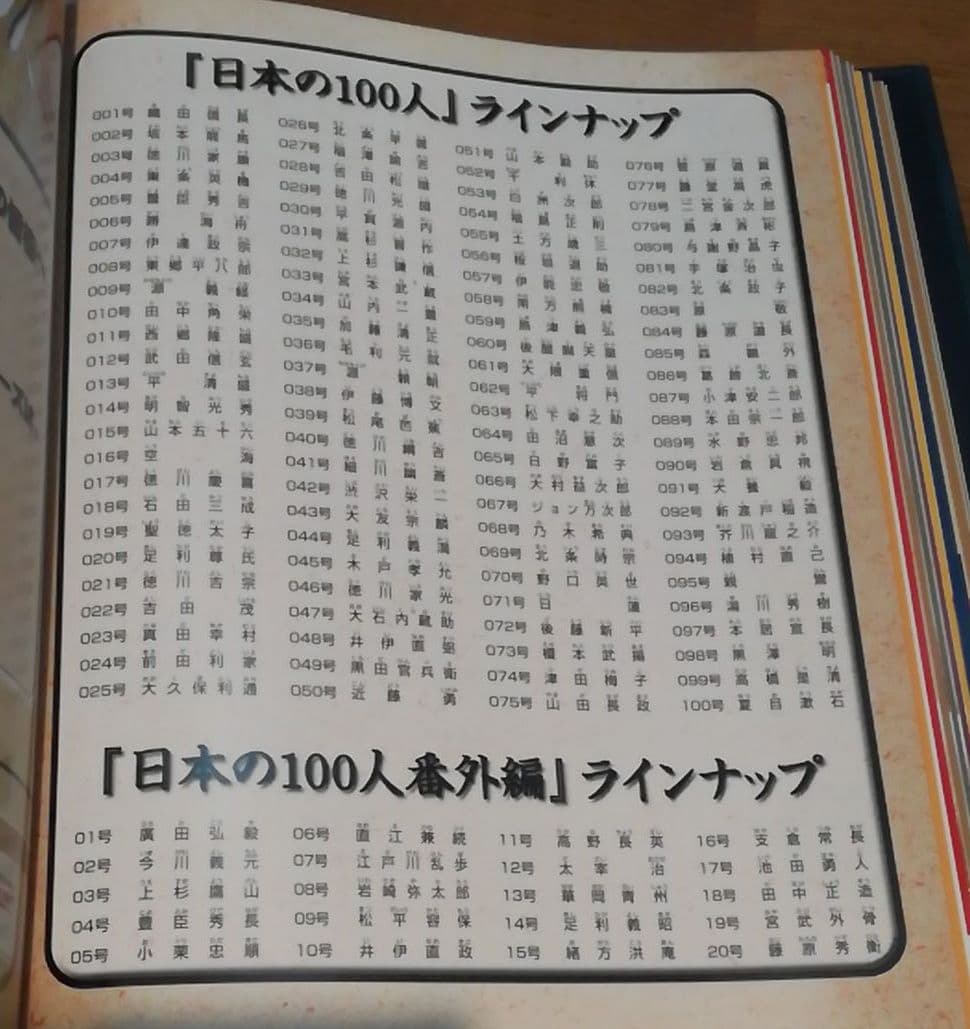 『日本の100人』ラインナップ
001号 織田信長
002号 坂本龍馬
003号 徳川家康
004号 東条英機
005号 豊臣秀吉
006号 勝海舟
007号 伊達政宗
008号 東郷平八郎
009号 源義経
010号 田中角栄
011号 西郷隆盛
012号 武田信玄
013号 平清盛
014号 明智光秀
015号 山本五十六
016号 空海
017号 徳川慶喜
018号 石田三成
019号 聖徳太子
020号 足利尊氏
021号 徳川吉宗
022号 吉田茂
023号 真田幸村
024号 前田利家
025号 大久保利通
026号 北条早雲
027号 福澤諭吉
028号 吉田松陰
029号 徳川光圀
030号 平賀源内
031号 高杉晋作
032号 上杉謙信
033号 宮本武蔵
034号 山内一豊
035号 加藤清正
036号 毛利元就
037号 源頼朝
038号 伊藤博文
039号 松尾芭蕉
040号 徳川綱吉
041号 細川幽斎
042号 渋沢栄一
043号 大友宗麟
044号 足利義満
045号 木戸孝允
046号 徳川家光
047号 大石内蔵助
048号 井伊直弼
049号 黒田官兵衛
050号 近藤勇
051号 山本勘助
052号 千利休
053号 白洲次郎
054号 福島正則
055号 土方歳三
056号 板垣退助
057号 伊能忠敬
058号 南方熊楠
059号 島津義弘
060号 後醍醐天皇
061号 大隈重信
062号 平将門
063号 松下幸之助
064号 田沼意次
065号 日野富子
066号 大村益次郎
067号 ジョン万次郎
068号 乃木希典
069号 北条時宗
070号 野口英世
071号 日蓮
072号 後藤新平
073号 榎本武揚
074号 津田梅子
075号 山田長政
076号 菅原道真
077号 藤堂高虎
078号 二宮金次郎
079号 島津斉彬
080号 与謝野晶子
081号 手塚治虫
082号 北条政子
083号 原敬
084号 藤原道長
085号 森鷗外
086号 葛飾北斎
087号 小津安二郎
088号 本田宗一郎
089号 水野忠邦
090号 岩倉具視
091号 犬養毅
092号 新渡戸稲造
093号 芥川龍之介
094号 植村直己
095号 親鸞
096号 湯川秀樹
097号 本居宣長
098号 黒澤明
099号 高橋是清
100号 夏目漱石
『日本の100人番外編』ラインナップ
01号 廣田弘毅
02号 今川義元
03号 上杉鷹山
04号 豊臣秀長
05号 小栗忠順
06号 直江兼続
07号 江戸川乱歩
08号 岩崎弥太郎
09号 松平容保
10号 井伊直政
11号 高野長英
12号 太宰治
13号 華岡青州
14号 足利義昭
15号 緒方洪庵
16号 支倉常長
17号 池田勇人
18号 田中正造
19号 宮武外骨
20号 藤原秀衡